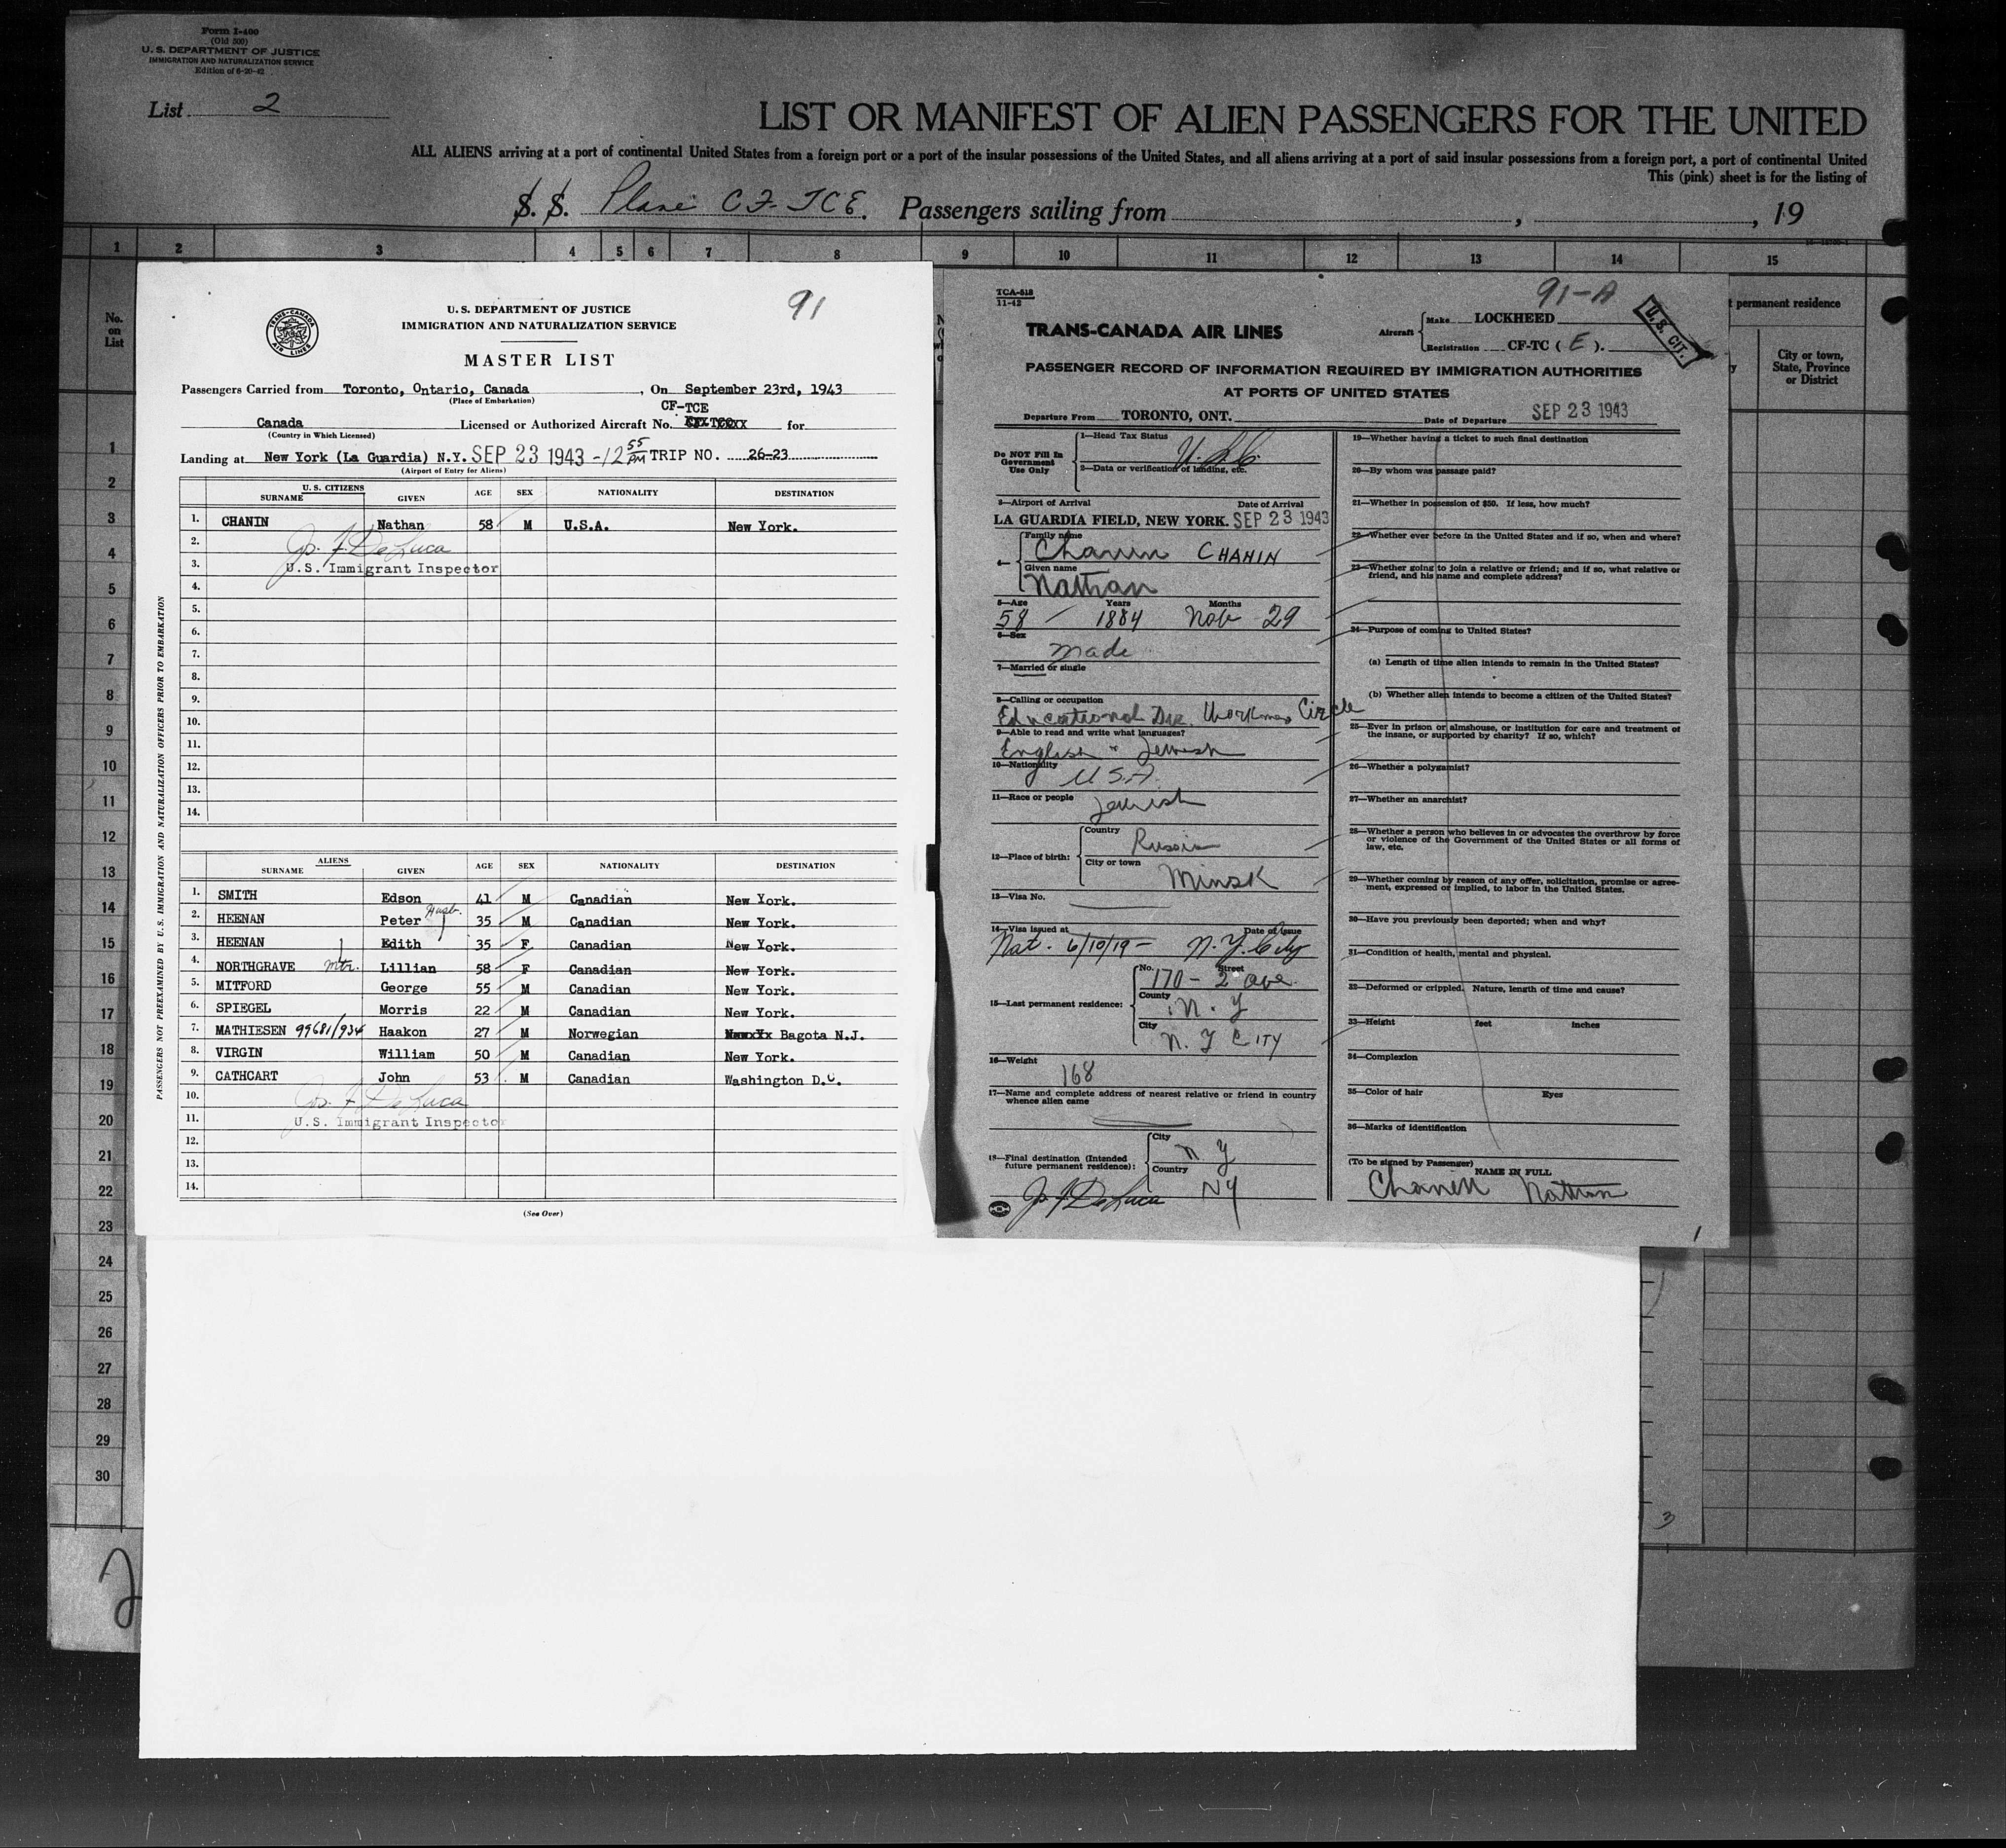 Form I-400
(Old 500)
U. S. DEPARTMENT OF JUSTICE
IMMIGRATION AND NATURALIZATION SERVICE
Edition of 6-20-42
List 2
LIST OR MANIFEST OF ALIEN PASSENGERS FOR THE UNITED
ALL ALIENS arriving at a port of continental United States from a foreign port or a port of the insular possessions of the United States, and all aliens arriving at a port of said insular possessions from a foreign port, a port of continental United
This (pink) sheet is for the listing of
S. S. Plane CF-TCE. Passengers sailing from , , 19
1 2 3 4 5 6 7 8 9 10 11 12 13 14 15
No. on List
t permanent residence
City or town, State, Province or District
1
2
3
4
5
6
7
8
9
10
11
12
13
14
15
16
17
18
19
20
21
22
23
24
25
26
27
28
29
30
2
3
91
TRANS-CANADA AIR LINES
U. S. DEPARTMENT OF JUSTICE
IMMIGRATION AND NATURALIZATION SERVICE
MASTER LIST
Passengers Carried from Toronto, Ontario, Canada , On September 23rd, 1943
(Place of Embarkation)
CF-TCE
Canada Licensed or Authorized Aircraft No. for
(Country in Which Licensed)
Landing at New York (La Guardia) N.Y. SEP 23 1943 - 12 55 PM TRIP NO. 26-23
(Airport of Entry for Aliens)
PASSENGERS NOT PREEXAMINED BY U.S. IMMIGRATION AND NATURALIZATION OFFICERS PRIOR TO EMBARKATION
U. S. CITIZENS
SURNAME GIVEN AGE SEX NATIONALITY DESTINATION
1. CHANIN Nathan 58 M U.S.A. New York.
2. Jos. F. DeLuca
3. U.S. Immigrant Inspector
4.
5.
6.
7.
8.
9.
10.
11.
12.
13.
14.
ALIENS
SURNAME GIVEN AGE SEX NATIONALITY DESTINATION
1. SMITH Edson 41 M Canadian New York.
2. HEENAN Peter Husb. 35 M Canadian New York.
3. HEENAN Edith 35 F Canadian New York.
4. NORTHGRAVE Mtr. Lillian 58 F Canadian New York.
5. MITFORD George 55 M Canadian New York.
6. SPIEGEL Morris 22 M Canadian New York.
7. MATHIESEN 99681/934 Haakon 27 M Norwegian Bagota N.J.
8. VIRGIN William 50 M Canadian New York.
9. CATHCART John 53 M Canadian Washington D.C.
10. Jos. F. DeLuca
11. U.S. Immigrant Inspector
12.
13.
14.
(See Over)
TCA-518
11-42
91-A
TRANS-CANADA AIR LINES
Aircraft Make LOCKHEED
Registration CF-TC ( E ).
U. S. CIT.
PASSENGER RECORD OF INFORMATION REQUIRED BY IMMIGRATION AUTHORITIES
AT PORTS OF UNITED STATES
Departure From TORONTO, ONT. Date of Departure SEP 23 1943
Do NOT Fill In Government Use Only
1—Head Tax Status
U.S.C.
2—Data or verification of landing, etc.
3—Airport of Arrival Date of Arrival
LA GUARDIA FIELD, NEW YORK. SEP 23 1943
4— Family name
Chanin CHANIN
Given name
Nathan
5—Age Years Months
58 1884 Nov 29
6—Sex
Made
7—Married or single
8—Calling or occupation
Educational Dir. Workmens Circle
9—Able to read and write what languages?
English & Jewish
10—Nationality
U.S.A.
11—Race or people
Jewish
12—Place of birth: Country
Russia
City or town
Minsk
13—Visa No.
14—Visa issued at Date of issue
Nat. 6/10/19 - N.Y. City
15—Last permanent residence: No. Street
170 - 2 Ave.
County
N. Y
City
N. Y CITY
16—Weight
168
17—Name and complete address of nearest relative or friend in country whence alien came
18—Final destination (Intended future permanent residence): City
N Y
Country
NY
Jos. F. DeLuca
19—Whether having a ticket to such final destination
20—By whom was passage paid?
21—Whether in possession of $50. If less, how much?
22—Whether ever before in the United States and if so, when and where?
23—Whether going to join a relative or friend; and if so, what relative or friend, and his name and complete address?
24—Purpose of coming to United States?
(a) Length of time alien intends to remain in the United States?
(b) Whether alien intends to become a citizen of the United States?
25—Ever in prison or almshouse, or institution for care and treatment of the insane, or supported by charity? If so, which?
26—Whether a polygamist?
27—Whether an anarchist?
28—Whether a person who believes in or advocates the overthrow by force or violence of the Government of the United States or all forms of law, etc.
29—Whether coming by reason of any offer, solicitation, promise or agreement, expressed or implied, to labor in the United States.
30—Have you previously been deported; when and why?
31—Condition of health, mental and physical.
32—Deformed or crippled. Nature, length of time and cause?
33—Height feet inches
34—Complexion
35—Color of hair Eyes
36—Marks of identification
(To be signed by Passenger)
NAME IN FULL
Chanin Nathan
1